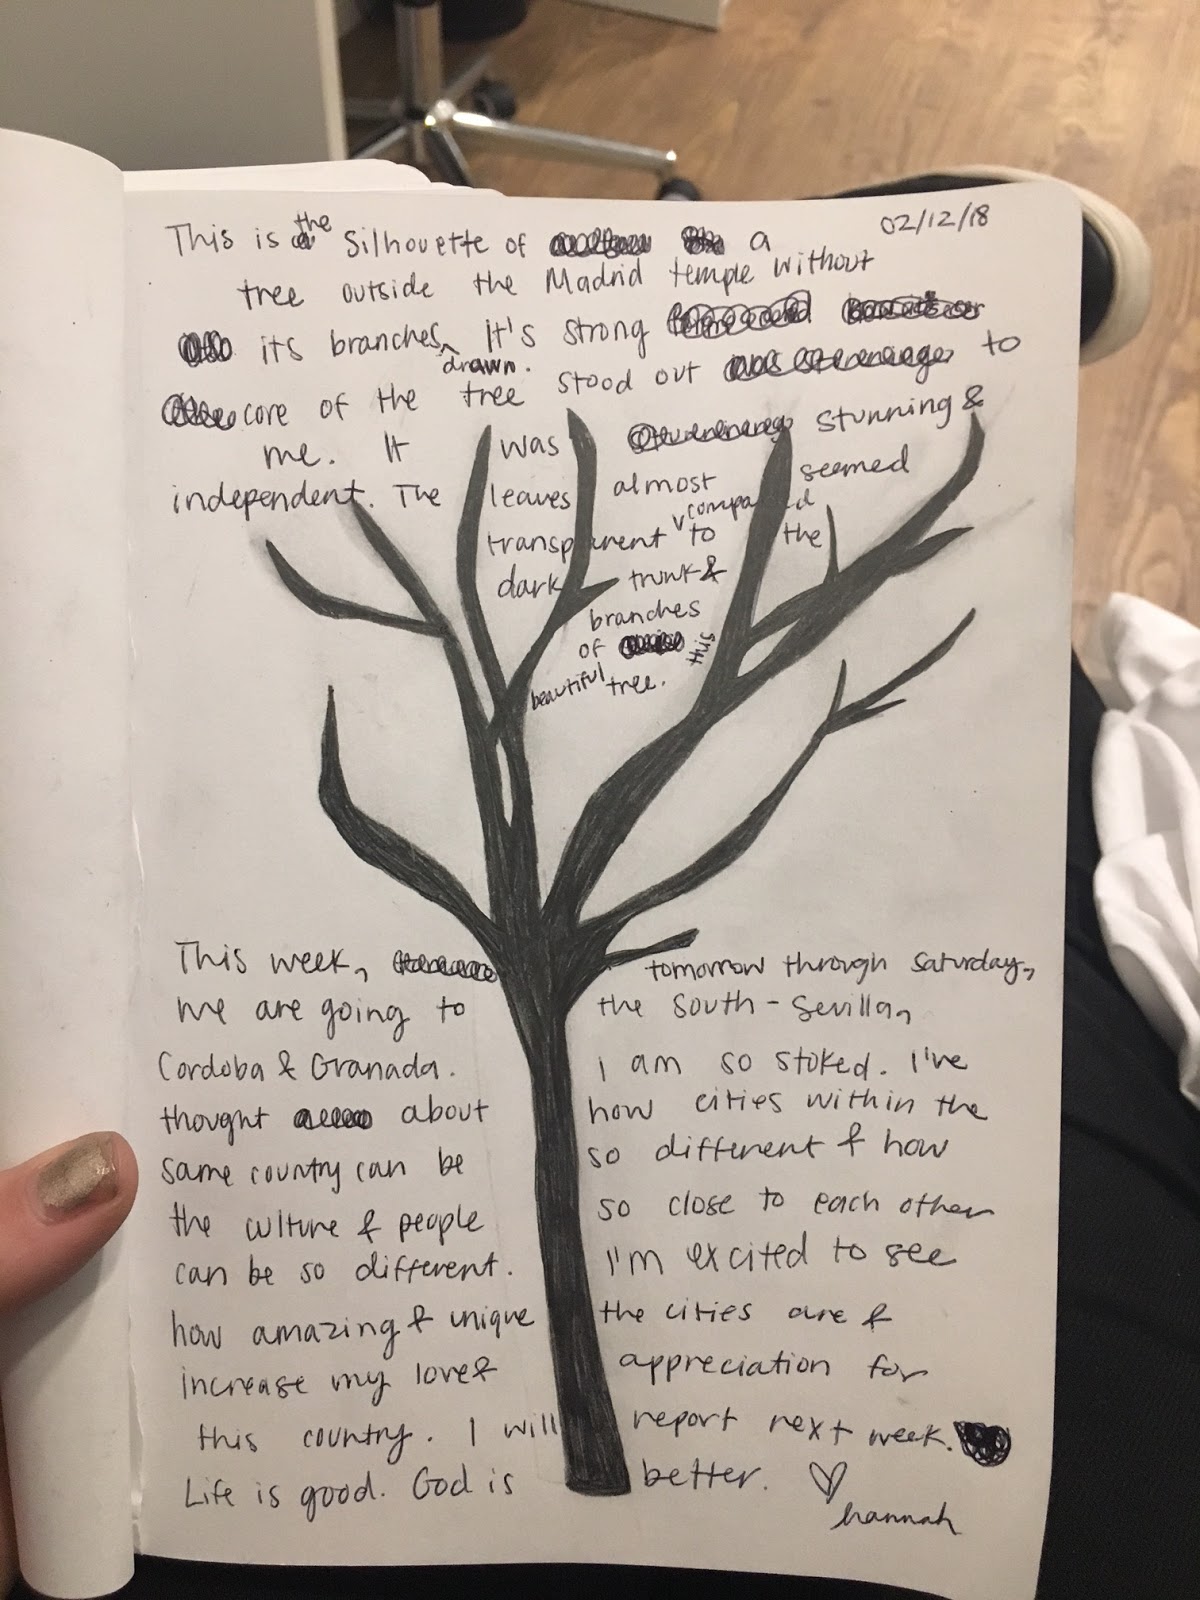 02/12/18
This is the silhouette of a
tree outside the Madrid temple without
its branches drawn. It's strong
core of the tree stood out to
me. It was stunning &
independent. The leaves almost seemed
transparent compared to the
dark trunk &
branches
of this
beautiful tree.
This week, tomorrow through Saturday,
we are going to the South - Sevilla,
Cordoba & Granada. I am so stoked. I've
thought about how cities within the
same country can be so different & how
the culture & people so close to each other
can be so different. I'm excited to see
how amazing & unique the cities are &
increase my love & appreciation for
this country. I will report next week.
Life is good. God is better. ♡
hannah